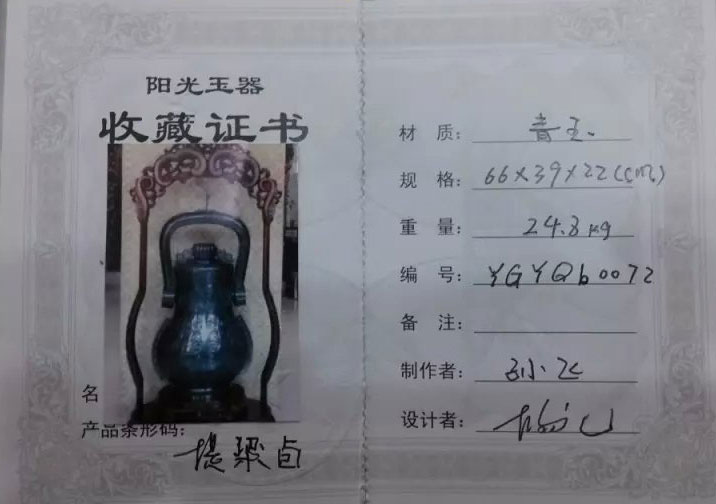 阳光玉器
收藏证书
名
产品条形码:
提梁卣
材 质: 青玉
规 格: 66×39×22(cm)
重 量: 24.8kg
编 号: YGYQb0072
备 注:
制作者: 孙飞
设计者: